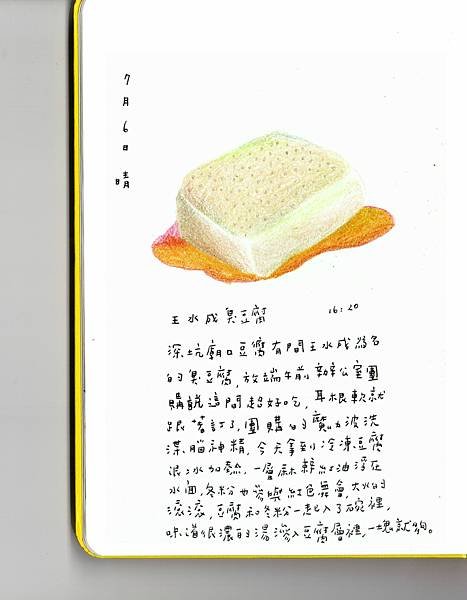 7月6日 晴
王水成臭豆腐 16:20
深坑廟口豆腐有間王水成為名
的臭豆腐，放端午前辦公室團
購說這間超好吃，耳根軟就
跟著訂了，團購的魔力波洗
潔腦神精，今天拿到冷凍豆腐
浪冰加熱，一層麻辣紅油浮在
水面，冬粉也參與紅色舞會，大火的
滾滾，豆腐和冬粉一起入了碗裡，
味道很濃的湯滲入豆腐層裡，一塊就夠。